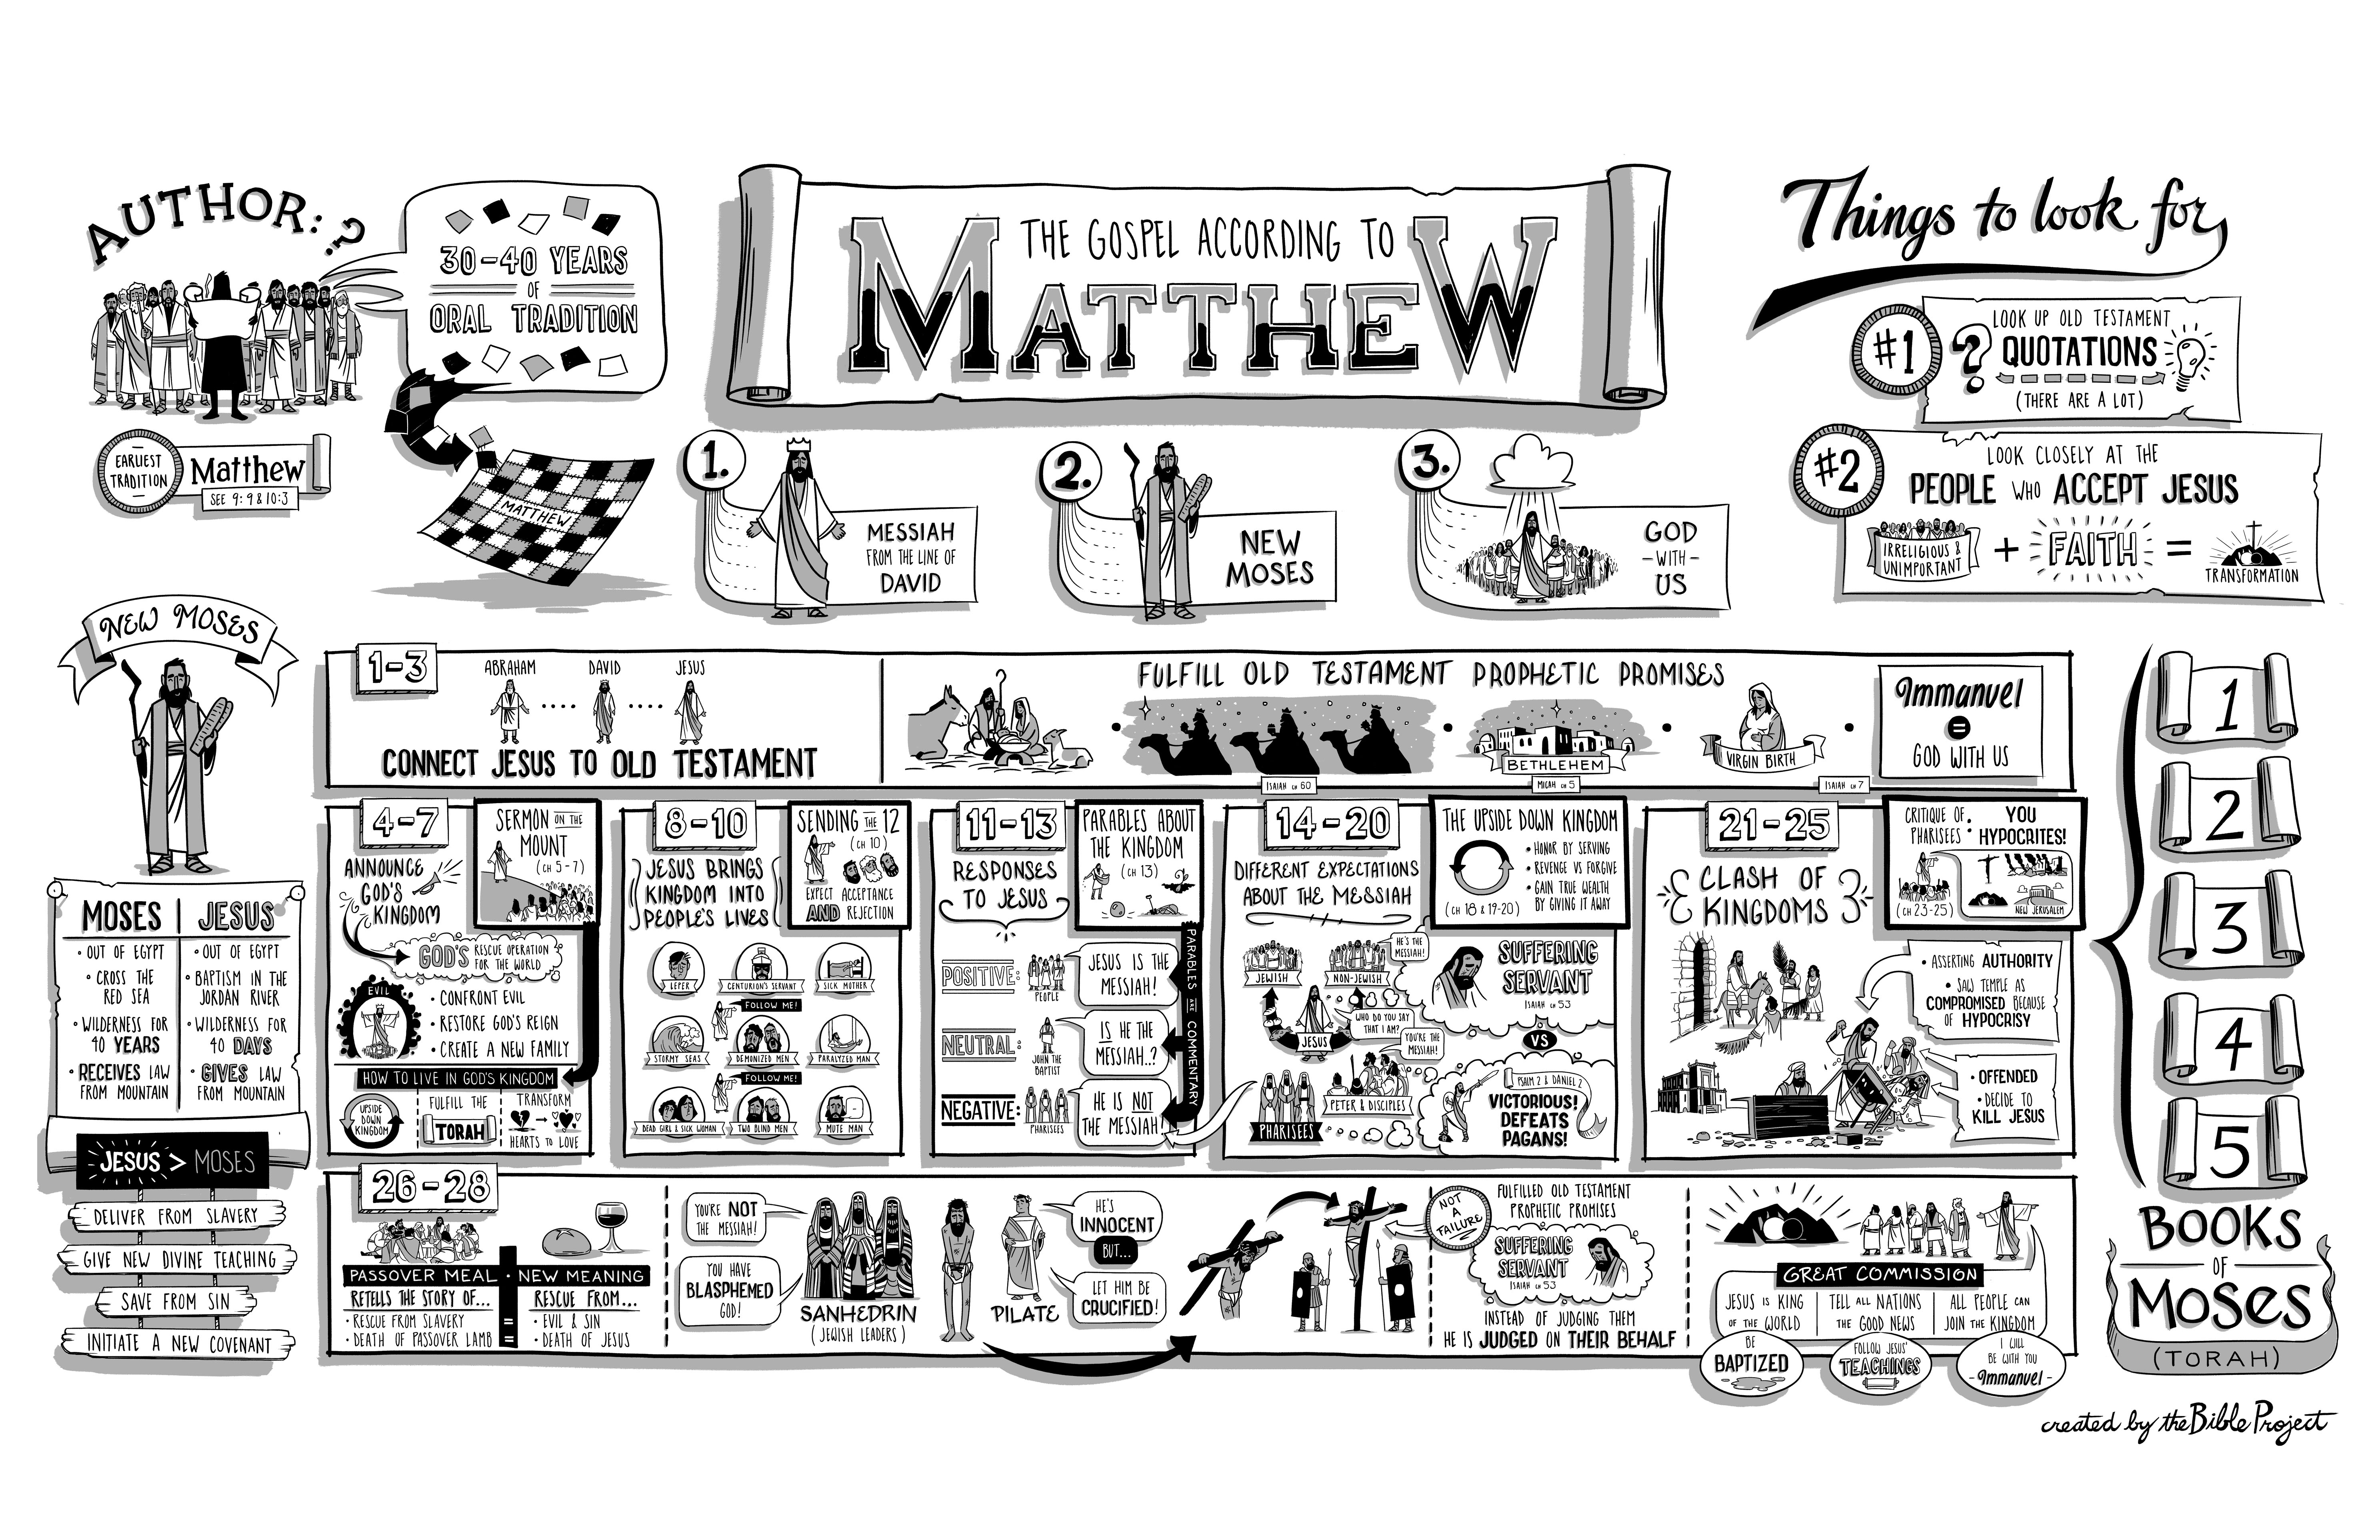 AUTHOR: ?
30-40 YEARS
OF
ORAL TRADITION
EARLIEST
TRADITION
Matthew
SEE 9:9 & 10:3
MATTHEW
THE GOSPEL ACCORDING TO
MATTHEW
1.
MESSIAH
FROM THE LINE OF
DAVID
2.
NEW
MOSES
3.
GOD
-WITH-
US
Things to look for
#1
?
LOOK UP OLD TESTAMENT
QUOTATIONS
(THERE ARE A LOT)
#2
LOOK CLOSELY AT THE
PEOPLE WHO ACCEPT JESUS
IRRELIGIOUS &
UNIMPORTANT
+
FAITH
=
TRANSFORMATION
NEW MOSES
MOSES
• OUT OF EGYPT
• CROSS THE
RED SEA
• WILDERNESS FOR
40 YEARS
• RECEIVES LAW
FROM MOUNTAIN
JESUS
• OUT OF EGYPT
• BAPTISM IN THE
JORDAN RIVER
• WILDERNESS FOR
40 DAYS
• GIVES LAW
FROM MOUNTAIN
JESUS > MOSES
DELIVER FROM SLAVERY
GIVE NEW DIVINE TEACHING
SAVE FROM SIN
INITIATE A NEW COVENANT
1-3
ABRAHAM
DAVID
JESUS
CONNECT JESUS TO OLD TESTAMENT
FULFILL OLD TESTAMENT PROPHETIC PROMISES
BETHLEHEM
VIRGIN BIRTH
ISAIAH CH 60
MICAH CH 5
ISAIAH CH 7
Immanuel
=
GOD WITH US
4-7
ANNOUNCE
GOD'S
KINGDOM
SERMON ON THE
MOUNT
(CH 5-7)
GOD'S RESCUE OPERATION
FOR THE WORLD
EVIL
• CONFRONT EVIL
• RESTORE GOD'S REIGN
• CREATE A NEW FAMILY
HOW TO LIVE IN GOD'S KINGDOM
UPSIDE
DOWN
KINGDOM
FULFILL THE
TORAH
TRANSFORM
HEARTS TO LOVE
8-10
JESUS BRINGS
KINGDOM INTO
PEOPLE'S LIVES
SENDING THE 12
(CH 10)
EXPECT ACCEPTANCE
AND REJECTION
LEPER
CENTURION'S SERVANT
SICK MOTHER
FOLLOW ME!
STORMY SEAS
DEMONIZED MEN
PARALYZED MAN
FOLLOW ME!
DEAD GIRL & SICK WOMAN
TWO BLIND MEN
MUTE MAN
11-13
RESPONSES
TO JESUS
PARABLES ABOUT
THE KINGDOM
(CH 13)
PARABLES ARE COMMENTARY
POSITIVE:
PEOPLE
JESUS IS THE
MESSIAH!
NEUTRAL:
JOHN THE
BAPTIST
IS HE THE
MESSIAH..?
NEGATIVE:
PHARISEES
HE IS NOT
THE MESSIAH!
14-20
DIFFERENT EXPECTATIONS
ABOUT THE MESSIAH
THE UPSIDE DOWN KINGDOM
• HONOR BY SERVING
• REVENGE VS FORGIVE
• GAIN TRUE WEALTH
BY GIVING IT AWAY
(CH 18 & 19-20)
JEWISH
NON-JEWISH
HE'S THE
MESSIAH!
SUFFERING
SERVANT
ISAIAH CH 53
JESUS
WHO DO YOU SAY
THAT I AM?
YOU'RE THE
MESSIAH!
VS
PETER & DISCIPLES
PHARISEES
PSALM 2 & DANIEL 2
VICTORIOUS!
DEFEATS
PAGANS!
21-25
CLASH OF
KINGDOMS
CRITIQUE OF
PHARISEES:
YOU
HYPOCRITES!
(CH 23-25)
NEW JERUSALEM
• ASSERTING AUTHORITY
• SAW TEMPLE AS
COMPROMISED BECAUSE
OF HYPOCRISY
• OFFENDED
• DECIDE TO
KILL JESUS
26-28
PASSOVER MEAL • NEW MEANING
RETELLS THE STORY OF...
• RESCUE FROM SLAVERY
• DEATH OF PASSOVER LAMB
=
=
RESCUE FROM...
• EVIL & SIN
• DEATH OF JESUS
YOU'RE NOT
THE MESSIAH!
YOU HAVE
BLASPHEMED
GOD!
SANHEDRIN
(JEWISH LEADERS)
PILATE
HE'S
INNOCENT
BUT...
LET HIM BE
CRUCIFIED!
NOT
A
FAILURE
FULFILLED OLD TESTAMENT
PROPHETIC PROMISES
SUFFERING
SERVANT
ISAIAH CH 53
INSTEAD OF JUDGING THEM
HE IS JUDGED ON THEIR BEHALF
GREAT COMMISSION
JESUS IS KING
OF THE WORLD
TELL ALL NATIONS
THE GOOD NEWS
ALL PEOPLE CAN
JOIN THE KINGDOM
BE
BAPTIZED
FOLLOW JESUS'
TEACHINGS
I WILL
BE WITH YOU
-Immanuel-
1
2
3
4
5
BOOKS
OF
MOSES
(TORAH)
created by the Bible Project